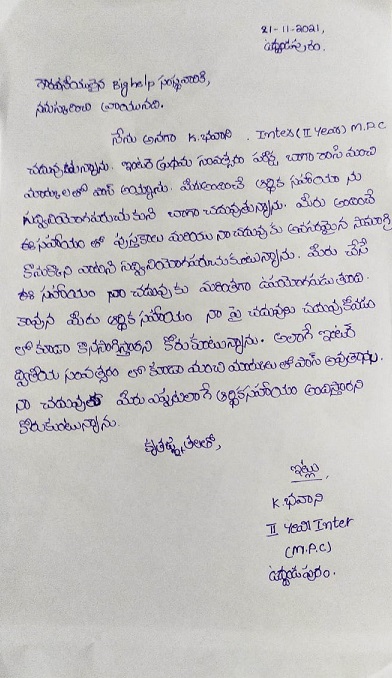 21-11-2021,
ఉద్దయపురం.
గౌరవనీయులైన Big help సంస్థవారికి,
నమస్కరించి వ్రాయునది.
నేను అనగా K.భవాని. Inter (II Year) M.P.C
చదువుతున్నాను. ఇంటర్ ప్రథమ సంవత్సరం పరీక్ష బాగా రాసి మంచి
మార్కులతో పాస్ అయ్యాను. మీరుఅందించే ఆర్థిక సహాయం ను
సద్వినియోగపరుచుకుని బాగా చదువుతున్నాను. మీరు అందించే
ఈ సహాయం తో పుస్తకాలు మరియు నా చదువుకు అవసరమైన సామాగ్రి
కొనుక్కొని వాటిని సద్వినియోగపరుచుకుంటున్నాను. మీరు చేసే
ఈ సహాయం నా చదువుకు మరింతగా ఉపయోగపడుతుంది.
కావున మీరు ఆర్థిక సహాయం నా పై చదువులు చదువుకోవడం
లో కూడా కొనసాగిస్తారని కోరుకుంటున్నాను. అలాగే ఇంటర్
ద్వితీయ సంవత్సరం లో కూడా మంచి మార్కులు తో పాస్ అవుతాను.
నా చదువుకు మీరు ఎప్పటిలాగే ఆర్థికసహాయం అందిస్తారని
కోరుకుంటున్నాను.
కృతజ్ఞతలతో,
ఇట్లు,
K.భవాని
II Year Inter
(M.P.C)
ఉద్దయపురం.